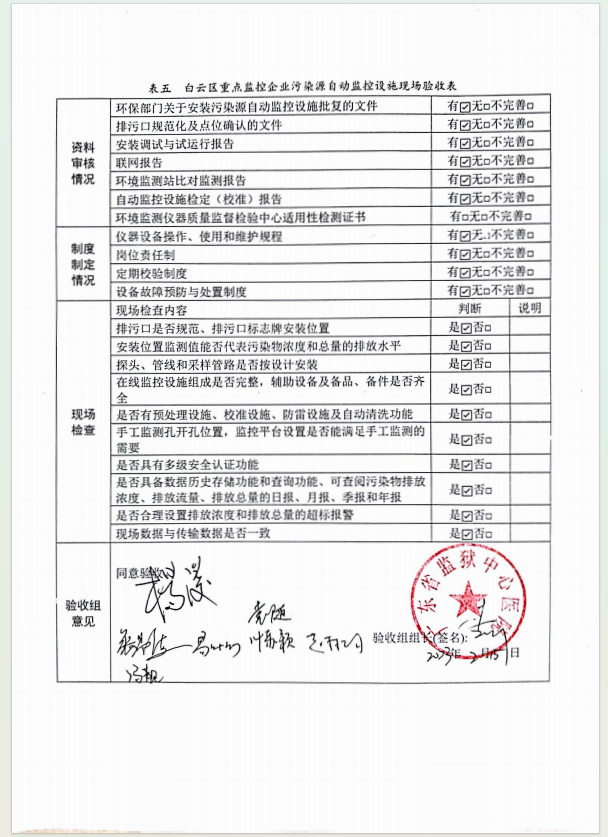 表五 白云区重点监控企业污染源自动监控设施现场验收表
资料审核情况
环保部门关于安装污染源自动监控设施批复的文件 有☑无□不完善□
排污口规范化及点位确认的文件 有☑无□不完善□
安装调试与试运行报告 有☑无□不完善□
联网报告 有☑无□不完善□
环境监测站比对监测报告 有☑无□不完善□
自动监控设施检定（校准）报告 有☑无□不完善□
环境监测仪器质量监督检验中心适用性检测证书 有□无□不完善□
制度制定情况
仪器设备操作、使用和维护规程 有☑无□不完善□
岗位责任制 有☑无□不完善□
定期校验制度 有☑无□不完善□
设备故障预防与处置制度 有☑无□不完善□
现场检查
现场检查内容 判断 说明
排污口是否规范、排污口标志牌安装位置 是☑否□
安装位置监测值能否代表污染物浓度和总量的排放水平 是☑否□
探头、管线和采样管路是否按设计安装 是☑否□
在线监控设施组成是否完整，辅助设备及备品、备件是否齐
全 是☑否□
是否有预处理设施、校准设施、防雷设施及自动清洗功能 是☑否□
手工监测孔开孔位置，监控平台设置是否能满足手工监测的
需要 是☑否□
是否具有多级安全认证功能 是☑否□
是否具备数据历史存储功能和查询功能、可查阅污染物排放
浓度、排放流量、排放总量的日报、月报、季报和年报 是☑否□
是否合理设置排放浓度和排放总量的超标报警 是☑否□
现场数据与传输数据是否一致 是☑否□
验收组意见
同意验收
验收组组长(签名):
2023年2月15日
广东省监狱中心医院